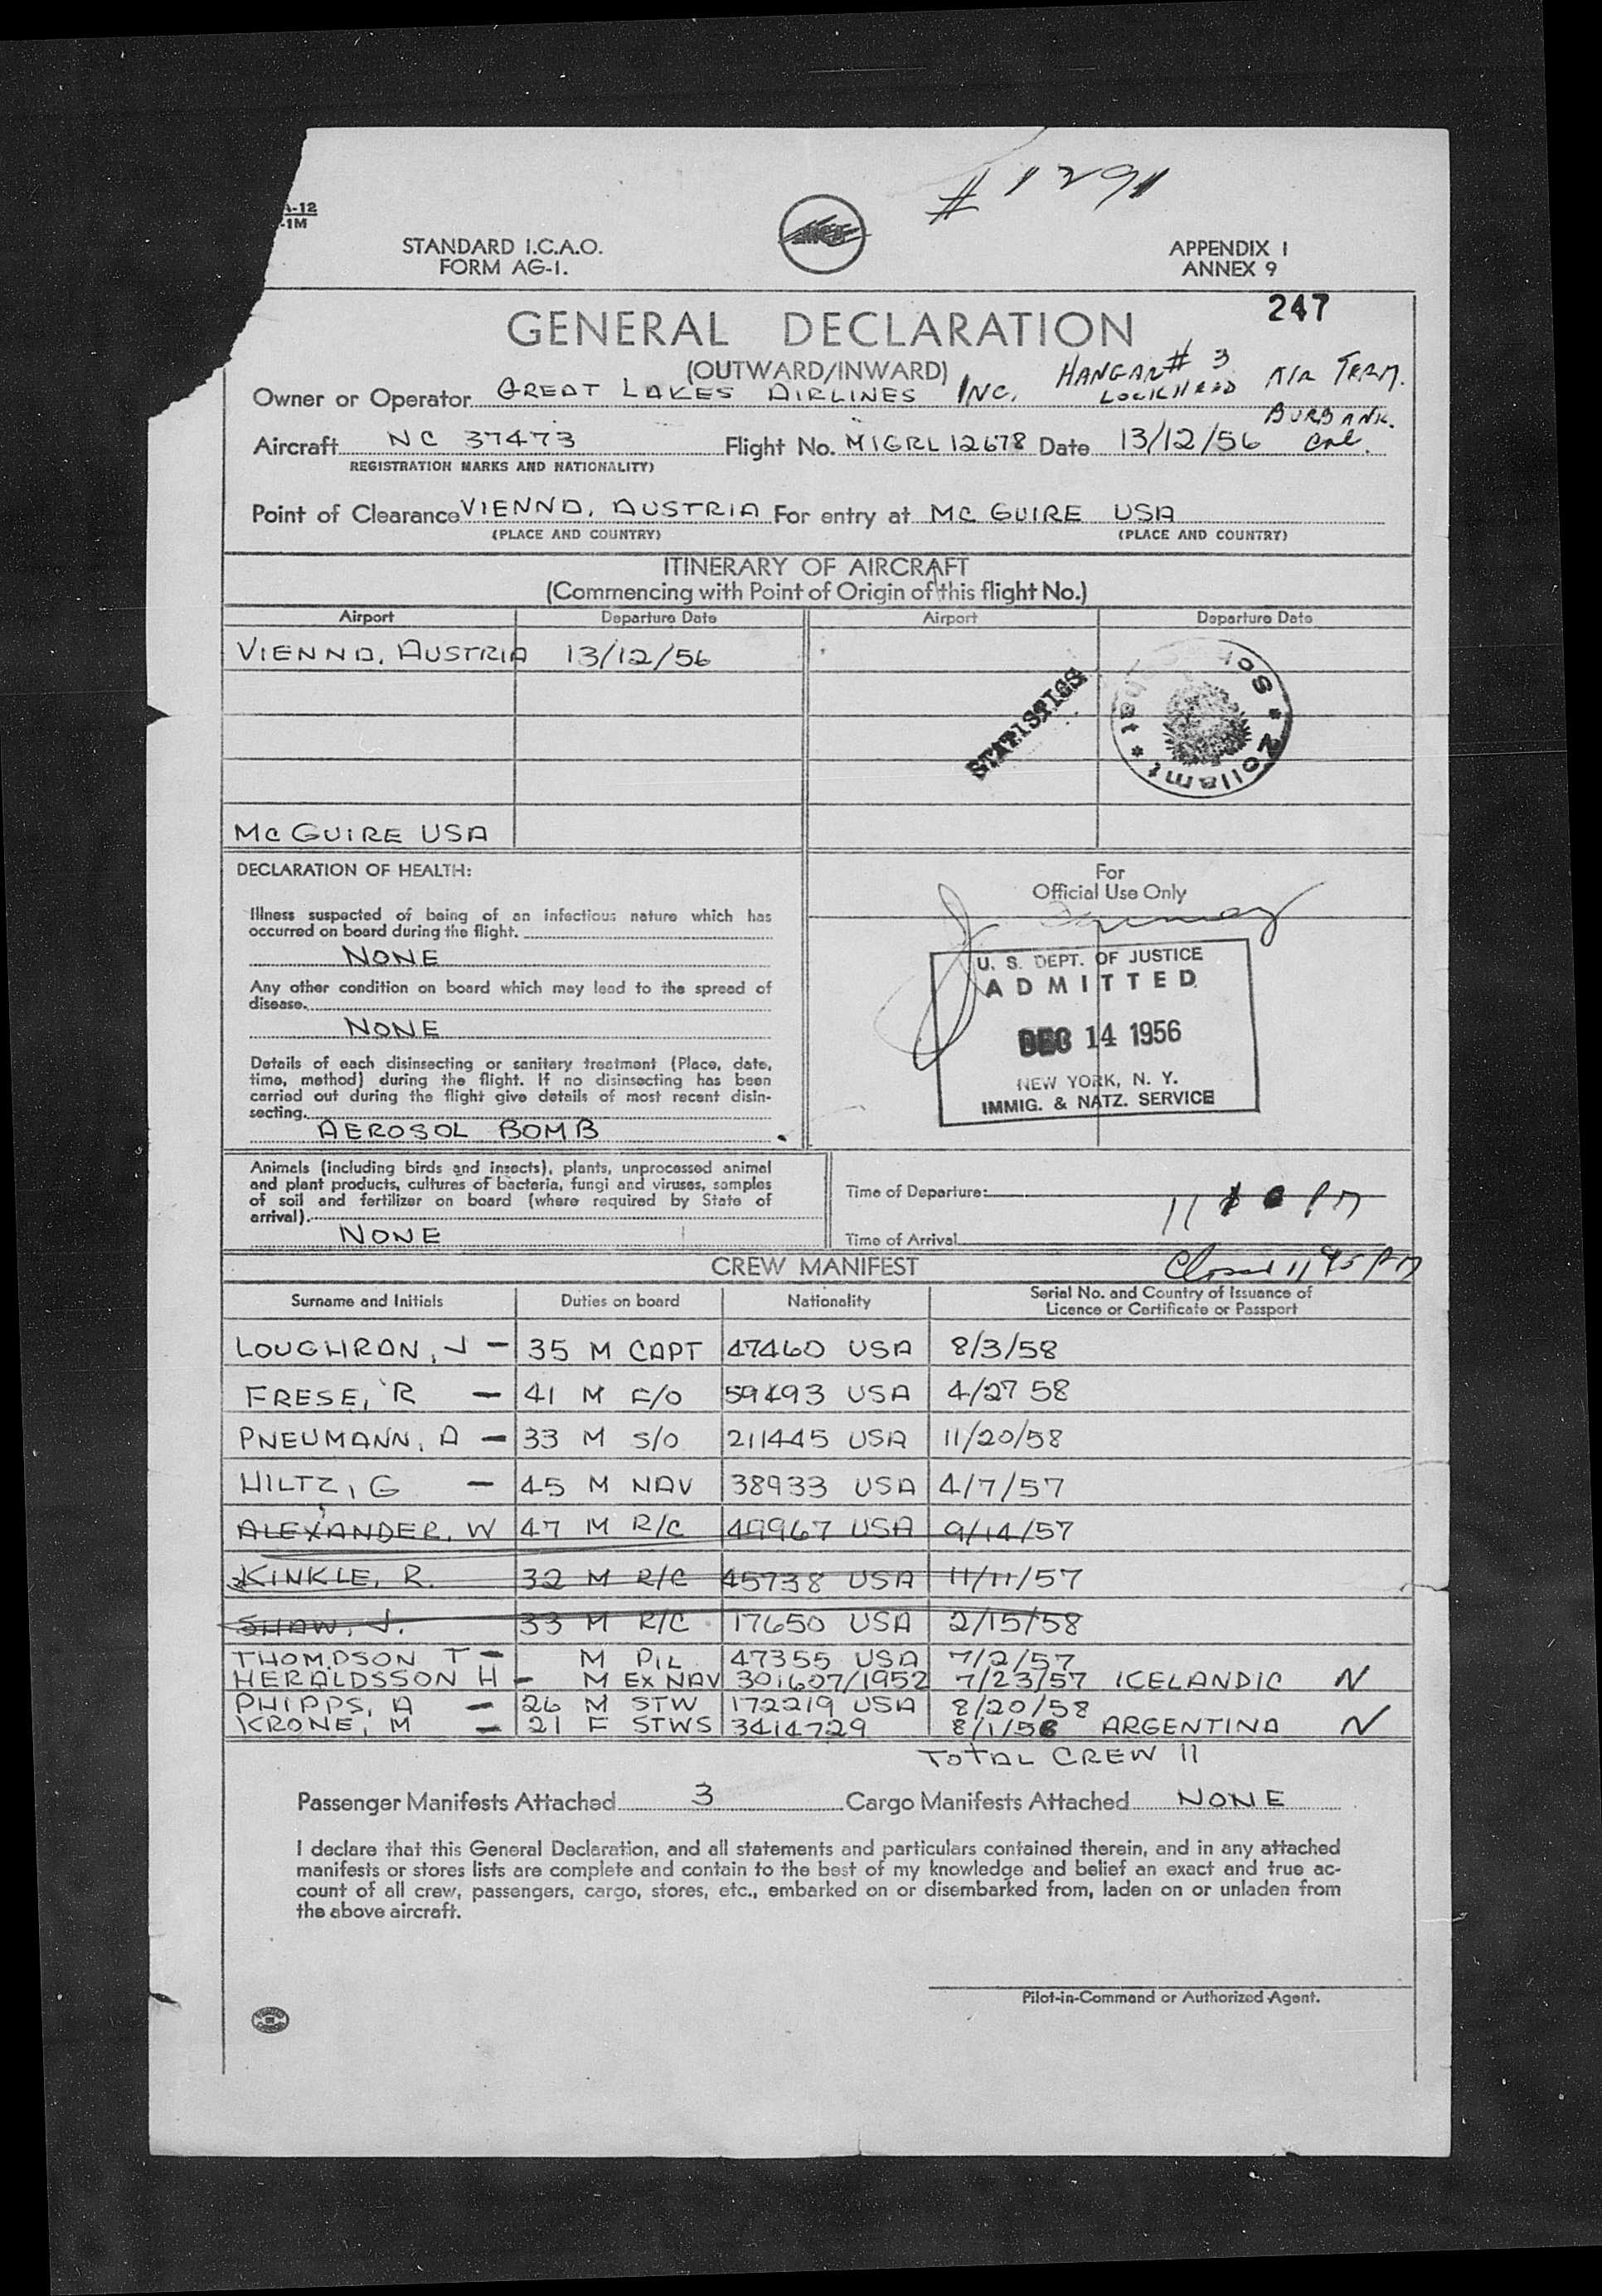 # 1291
A-12
-1M
STANDARD I.C.A.O.
FORM AG-1.
APPENDIX I
ANNEX 9
247
GENERAL DECLARATION
(OUTWARD/INWARD)
Owner or Operator GREAT LAKES AIRLINES INC. HANGAR # 3 LOCKHEED AIR TERM. BURBANK. Cal.
Aircraft NC 37473 Flight No. MIGRL 12678 Date 13/12/56
REGISTRATION MARKS AND NATIONALITY)
Point of Clearance VIENNA, AUSTRIA For entry at MC GUIRE USA
(PLACE AND COUNTRY) (PLACE AND COUNTRY)
ITINERARY OF AIRCRAFT
(Commencing with Point of Origin of this flight No.)
Airport Departure Date Airport Departure Date
VIENNA, AUSTRIA 13/12/56
STATISTICS
Zollamt
MC GUIRE USA
DECLARATION OF HEALTH:
Illness suspected of being of an infectious nature which has
occurred on board during the flight.
NONE
Any other condition on board which may lead to the spread of
disease.
NONE
Details of each disinsecting or sanitary treatment (Place, date,
time, method) during the flight. If no disinsecting has been
carried out during the flight give details of most recent disin-
secting.
AEROSOL BOMB
For
Official Use Only
U. S. DEPT. OF JUSTICE
ADMITTED
DEC 14 1956
NEW YORK, N. Y.
IMMIG. & NATZ. SERVICE
Animals (including birds and insects), plants, unprocessed animal
and plant products, cultures of bacteria, fungi and viruses, samples
of soil and fertilizer on board (where required by State of
arrival).
NONE
Time of Departure:
Time of Arrival 11 PM
Closed 11 45 PM
CREW MANIFEST
Surname and Initials Duties on board Nationality Serial No. and Country of Issuance of
Licence or Certificate or Passport
LOUGHRAN, J - 35 M CAPT 47460 USA 8/3/58
FRESE, R - 41 M F/O 59493 USA 4/27 58
PNEUMANN, A - 33 M S/O 211445 USA 11/20/58
HILTZ, G - 45 M NAV 38933 USA 4/7/57
ALEXANDER, W 47 M R/C 49967 USA 9/14/57
KINKLE, R. 32 M R/C 45738 USA 11/11/57
SHAW, J. 33 M R/C 17650 USA 2/15/58
THOMPSON T - M PIL 47355 USA 7/2/57
HERALDSSON H - M EX NAV 301607/1952 7/23/57 ICELANDIC N
PHIPPS, A - 26 M STW 172219 USA 8/20/58
KRONE, M - 21 F STWS 3414729 8/1/58 ARGENTINA N
TOTAL CREW 11
Passenger Manifests Attached 3 Cargo Manifests Attached NONE
I declare that this General Declaration, and all statements and particulars contained therein, and in any attached
manifests or stores lists are complete and contain to the best of my knowledge and belief an exact and true ac-
count of all crew, passengers, cargo, stores, etc., embarked on or disembarked from, laden on or unladen from
the above aircraft.
Pilot-in-Command or Authorized Agent.